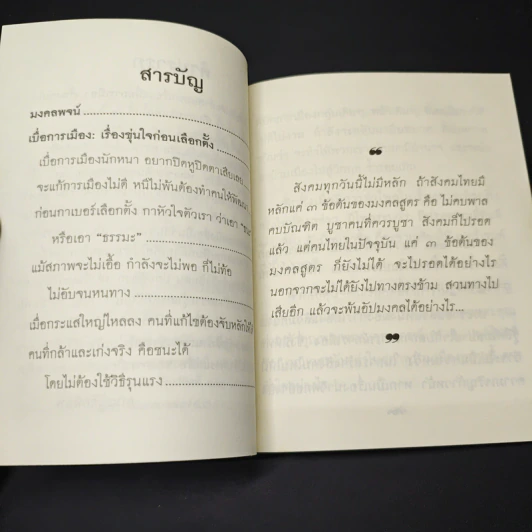 สารบัญ
มงคลพจน์
เบื่อการเมือง: เรื่องขุ่นใจก่อนเลือกตั้ง
เบื่อการเมืองนักหนา อยากปิดหูปิดตาเสียเลย
จะแก้การเมืองไม่ดี หนีไม่พ้นต้องทำคนให้พัฒนา
ก่อนกาเบอร์เลือกตั้ง กาหัวใจตัวเรา ว่าเอา
หรือเอา "ธรรมะ"
แม้สภาพจะไม่เอื้อ กำลังจะไม่พอ ก็ไม่ท้อ
ไม่อับจนหนทาง
เมื่อกระแสใหญ่ไหลลง คนที่แก้ไขต้องจับหลักให้ได้
คนที่กล้าและเก่งจริง คือชนะได้
โดยไม่ต้องใช้วิธีรุนแรง
“
สังคมทุกวันนี้ไม่มีหลัก ถ้าสังคมไทยมี
หลักแค่ ๓ ข้อต้นของมงคลสูตร คือ ไม่คบพาล
คบบัณฑิต บูชาคนที่ควรบูชา สังคมก็ไปรอด
แล้ว แต่คนไทยในปัจจุบัน แค่ ๓ ข้อต้นของ
มงคลสูตร ก็ยังไม่ได้ จะไปรอดได้อย่างไร
นอกจากจะไม่ได้ยังไปทางตรงข้าม สวนทางไป
เสียอีก แล้วจะพ้นอัปมงคลได้อย่างไร...
”